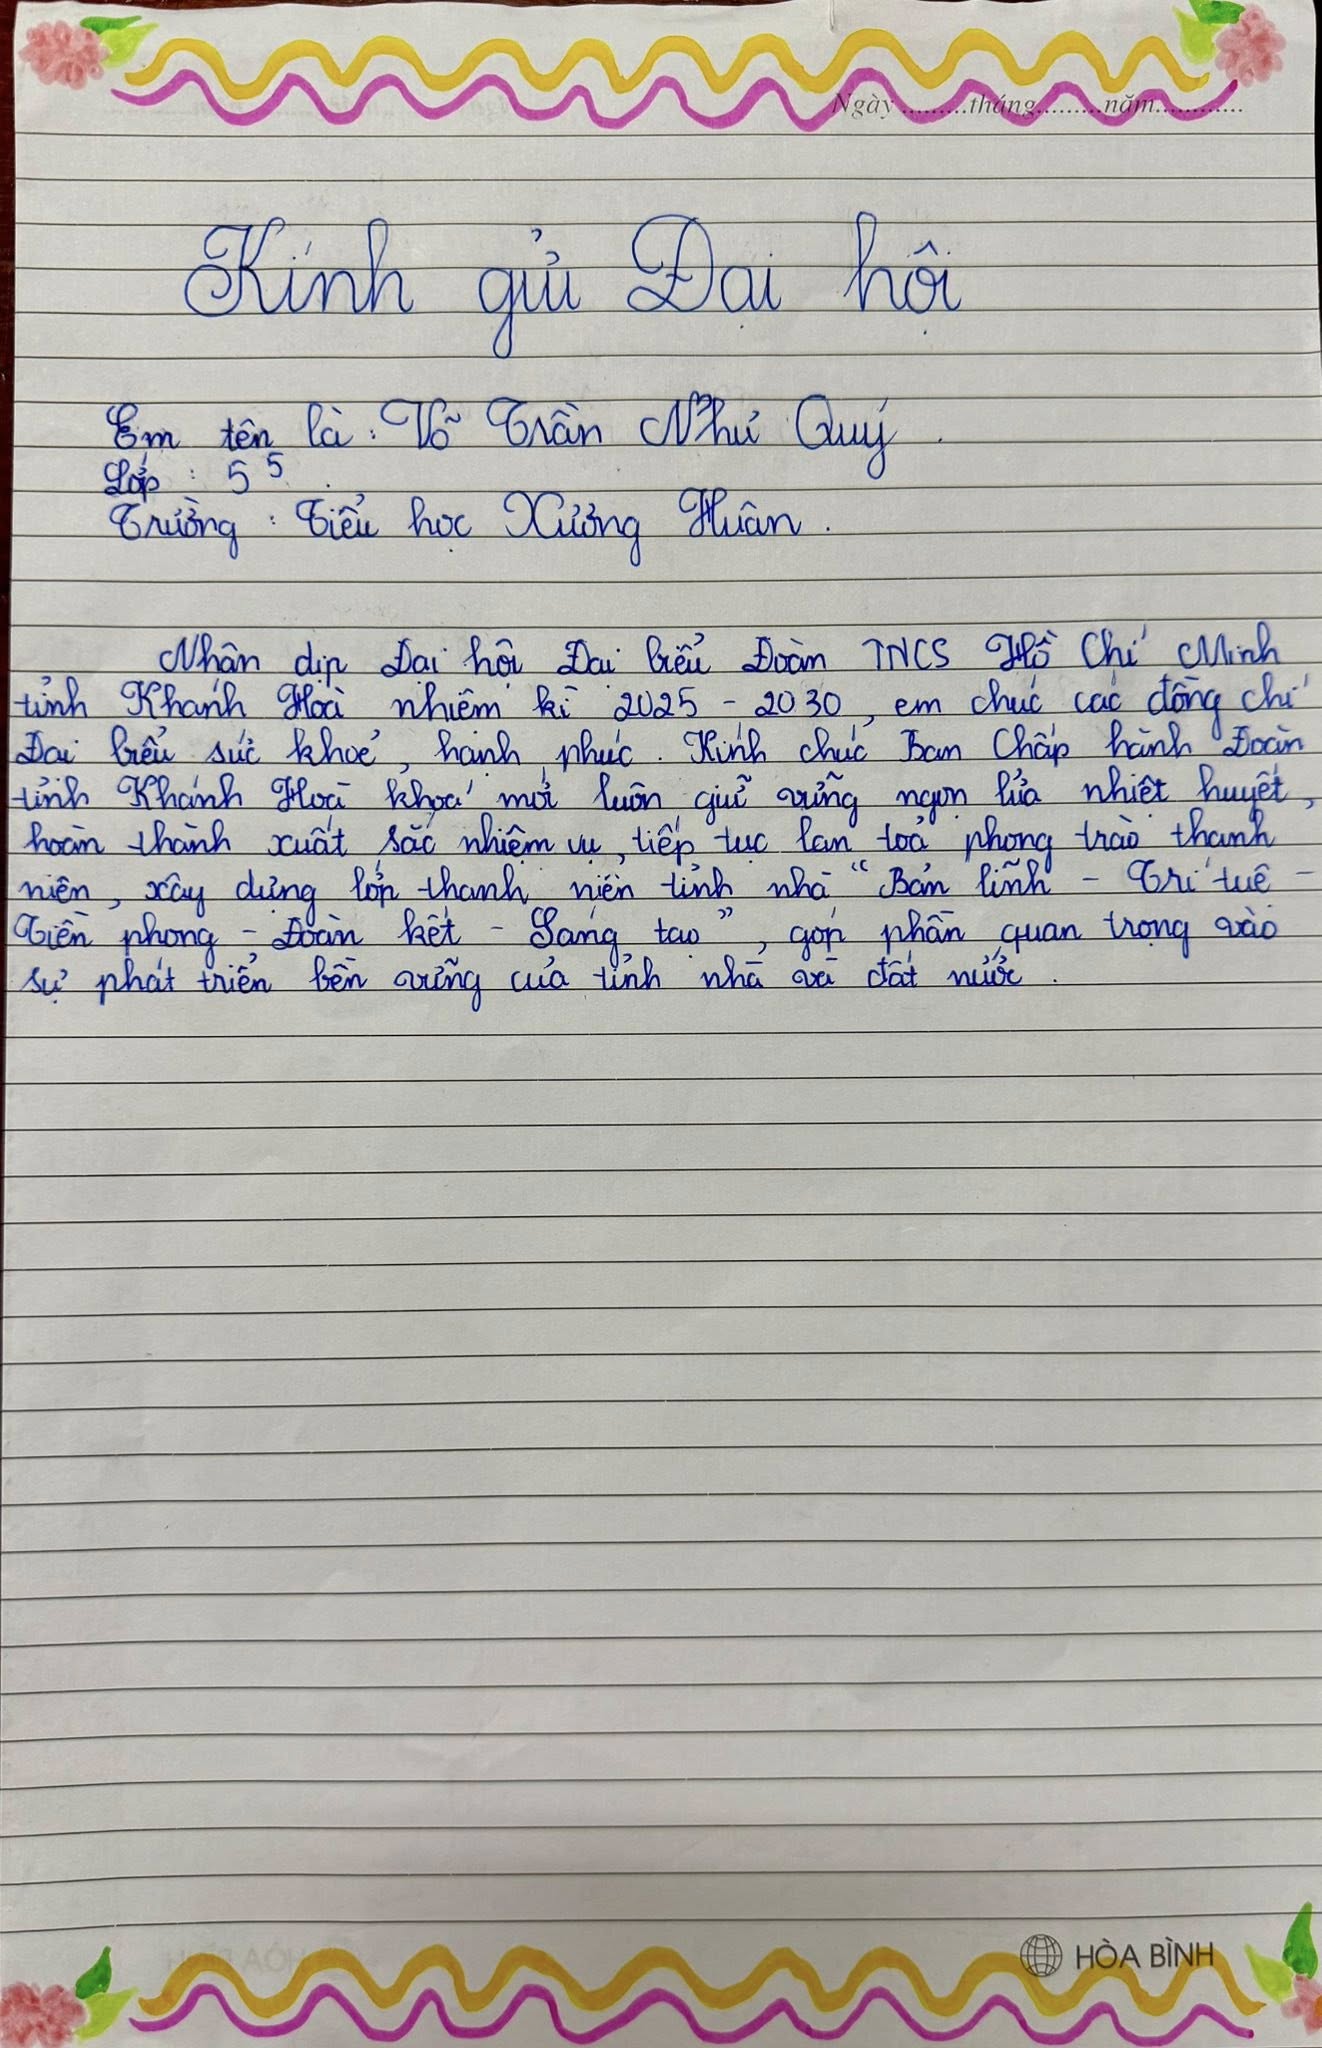 Ngày.........tháng.........năm............
Kính gửi Đại hội
Em tên là : Võ Trần Như Quý .
Lớp : 5 5 .
Trường : Tiểu học Xương Huân .
Nhân dịp Đại hội Đại biểu Đoàn TNCS Hồ Chí Minh
tỉnh Khánh Hoà nhiệm kì 2025 - 2030, em chúc các đồng chí
Đại biểu sức khoẻ, hạnh phúc. Kính chúc Ban Chấp hành Đoàn
tỉnh Khánh Hoà khoá mới luôn giữ vững ngọn lửa nhiệt huyết,
hoàn thành xuất sắc nhiệm vụ, tiếp tục lan toả phong trào thanh
niên, xây dựng lớp thanh niên tỉnh nhà "Bản lĩnh - Trí tuệ -
Tiên phong - Đoàn kết - Sáng tạo", góp phần quan trọng vào
sự phát triển bền vững của tỉnh nhà và đất nước .
HÒA BÌNH